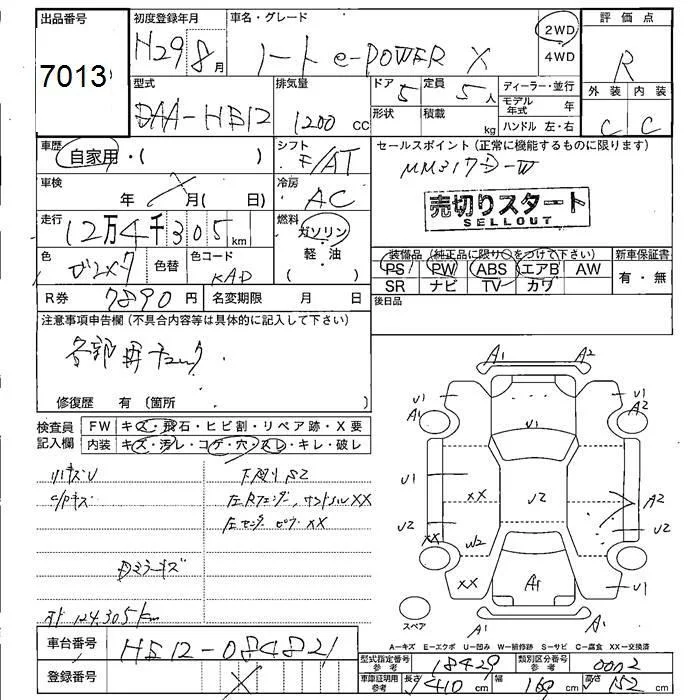 出品番号
7013
初度登録年月
H29 8月
車名・グレード
ノート e-POWER X
2WD
4WD
評価点
R
外装 内装
C C
型式
DAA-HE12
排気量
1200 cc
ドア 5
形状
定員 5人
積載 kg
ディーラー・並行
モデル年式 年
ハンドル 左・右
車歴
自家用・( )
シフト
F/AT
セールスポイント(正常に機能するものに限ります)
MM317D-W
売切りスタート
SELLOUT
車検
年 月( 日)
冷房
AC
走行
12万4千305km
燃料
ガソリン
軽・油
( )
色
色替
色コード
KAD
装備品(純正品に限り○をつけて下さい)
PS PW ABS エアB AW
SR ナビ TV カワ
新車保証書
有・無
後日品
R券 7890円
名変期限 月 日
注意事項申告欄(不具合内容等は具体的に記入して下さい)
各部用チェック
修復歴 有 〔箇所 〕
検査員記入欄
FW キズ・飛石・ヒビ割・リペア跡・X要
内装 キズ・汚レ・コゲ・穴・スレ・キレ・破レ
リキズU
C/Pキズ
下廻りS2
Dミラーキズ
メーター 124,305km
A1 A2
U1 U1 U1
A1 A2
U1 XX U2 A2
U2 XX W2 U2
XX A1 U1
A1 A2
スペア
A-キズ E-エクボ U-凹み W-補修跡 S-サビ C-腐食 XX-交換済
車台番号
HE12-084821
登録番号
X
型式指定番号 参考 18429
類別区分番号 参考 0002
車庫証明用 参考 長さ 410cm 幅 169cm 高さ 152cm